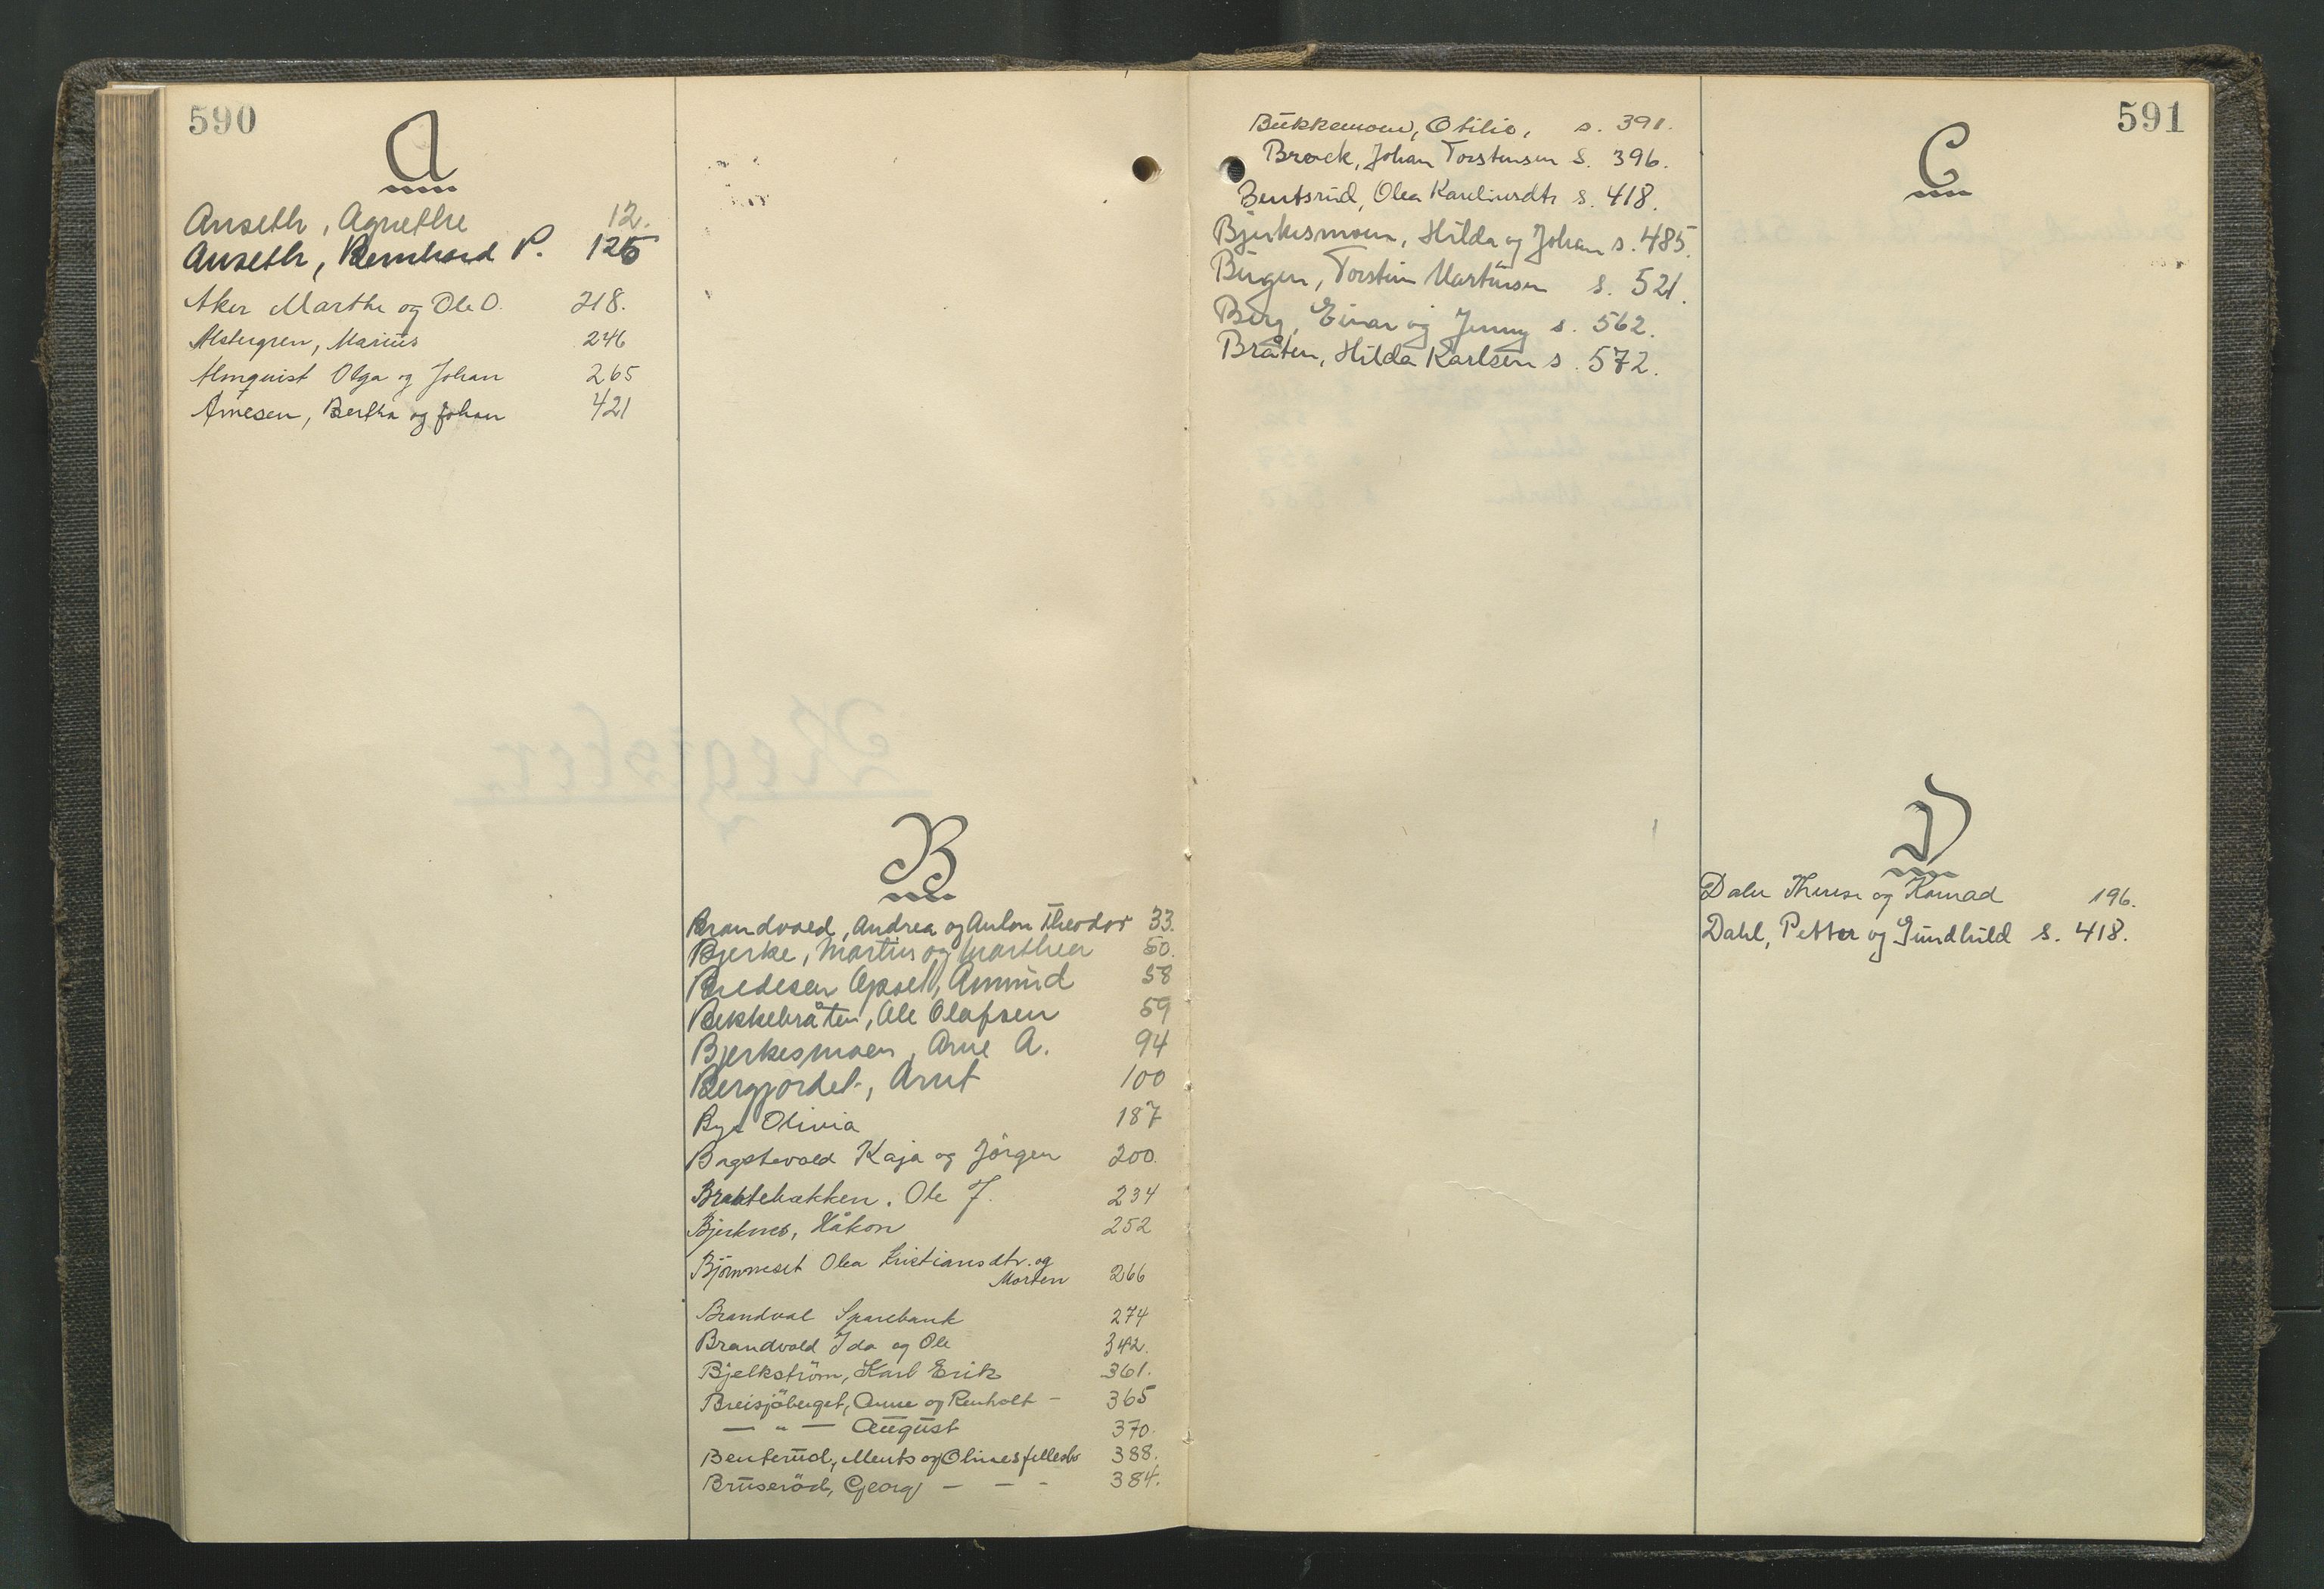 590
A
Anseth, Agnethe 12.
Anseth, Bernhard P. 125
Aker Marthe og Ole O. 218.
Alstergren, Marius 246
Almquist Olga og Johan 265
Arnesen, Bertha og Johan 421
B
Brandvold, Andrea og Anton Theodor 33.
Bjerke, Martin og Marthea 50.
Bredesen Opset, Amund 58
Bekkebråten, Ole Olafsen 59
Bjerkesmoen, Arne A. 94
Bergjordet, Arnt 100
Bye Olivia 187
Bogstevold Kaja og Jörgen 200.
Bråtebækken. Ole J. 234
Bjerknes, Håkon 252
Björnneset Olea Kristiansdtr. og
Morten 266
Brandval Sparebank 274
Brandvold Ida og Ole 342.
Bjelkström, Karl Erik 361.
Breisjöberget, Anne og Renholt - 365
— " — August 370.
Bentsrud, Ments og Olines fellesbo 388.
Bruseröd, Georg - - - 384.
Bukkemoen, Otilie, s. 391.
Brock, Johan Torstensen s. 396.
Bentsrud, Olea Karlinusdtr s. 418.
Bjerkesmoen, Hilda og Johan s. 485.
Bugen, Torstein Martinsen s. 521.
Berg, Einar og Jenny s. 562.
Bråten, Hilda Karlsen s. 572.
591
C
D
Daler Therese og Konrad 196.
Dahl, Petter og Gundhild s. 418.